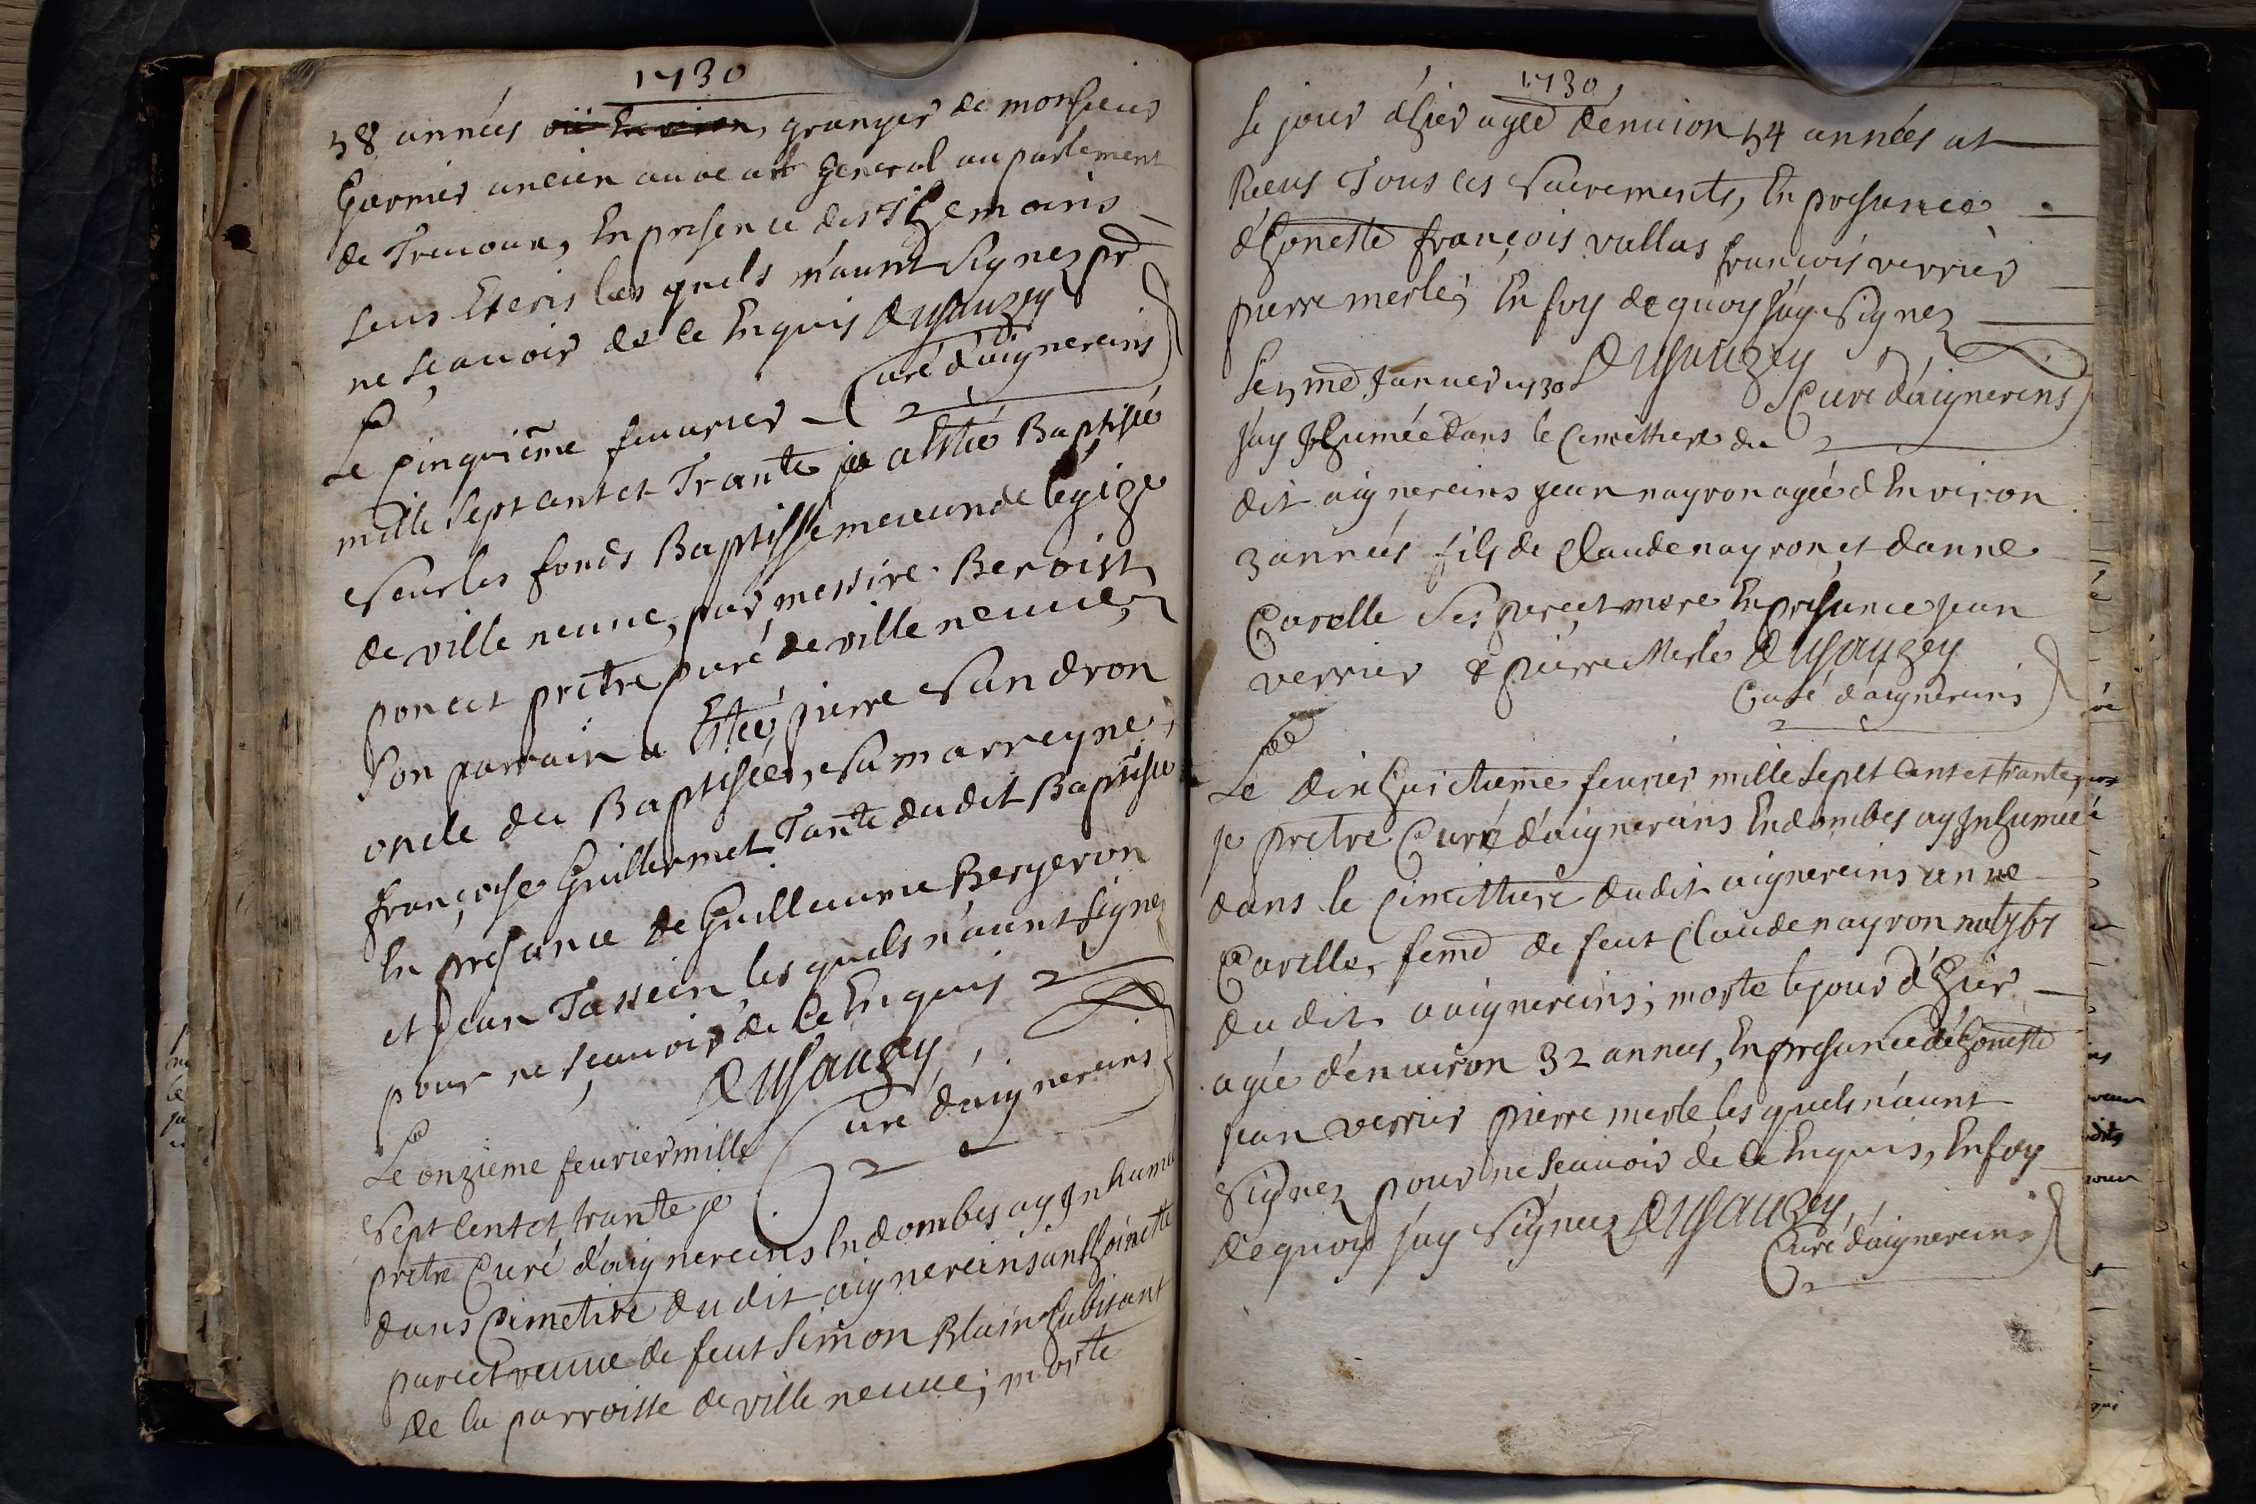 1730
58 années ou Environ, granger de monsieur
Garnier ancien auocat General au parlement
de Treuoux, En presence des Thémoins
sous Escris les quels n'aunt Signez pr
ne sçauoir de ce Enquis Dusauzey
Curé d'aignereins
Le cinquième feuurier
mille sept cent et Trante a esté Baptisé
sur les fonds Baptissemeaux de l'égize
de ville neuue, par messire Benoist
poncet prêtre curé de ville neuue,
son parrain a Esté pierre Sandron
oncle du Baptisée, sa marreyne,
françoise Guillermet Tante du dit Baptisée
En presance de Guillaume Bergeron
et Jean Tassein les quels n'aunt signez
pour ne sçauoir de ce Enquis
Dusauzey,
Curé d'aignereins
Le onzieme feurier mille
sept cent et trante je
prêtre Curé d'aignereins En dombes ay Jnhumé
dans Cimetire du dit aignereins anthoinette
paret veuue de feut Simon Blain habitant
de la parroisse de ville neuue, morte
1730,
le jour d'hier agée d'enuiron 54 années at
Reeus Tous ces Sacrements, En presance
d'honeste françois vallas françois verrier
pierre merle, En foy de quoy j'ay Signez
Dusauzey
Curé d'aignereins
Le me Januier 1730
j'ay Jnhumée dans le Cimettiere du
dit aignereins jean nayron agée d'Environ
3 années fils de Claude nayron, et danne
Carelle Ses pere et mere, En presance jean
verrier & pierre Merle Dusauzey
Curé d'aignereins
Le dix huictieme feurier mille sept cent et trante
je pretre Curé d'aignereins En dombes ay Jnhumée
dans le Cimettiere du dit aignereins anne
Carelle, feme de feut Claude nayron
du dit aignereins, morte le jour d'hier
agée d'enuiron 32 annees, En presance d'honeste
jean verrier pierre merle les quels n'aunt
Signez pour ne sçauoir de ce Enquis, En foy
de quoy j'ay Signez Dusauzey,
Curé d'aignereins